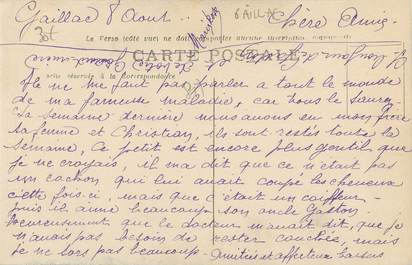 Gaillac 8 Août
Chère Amie
30f
GAILLAC
Le Verso seul ne doit comporter aucune inscription
CARTE POSTALE
Correspondance
Je ne me fait pas parler a tout le monde
de ma fameuse maladie, car nous le
La semaine dernière nous avons eu mon frère
sa femme et Christian, ils sont restés toute la
semaine, ce petit est encore plus gentil que
je ne croyais, il m'a dit que ce n'était pas
un cochon qui lui avait coupé les cheveux
cette fois-ci, mais que c'était un coiffeur
puis il aime beaucoup son oncle Gaston.
heureusement que le docteur m'avait dit, que je
n'avais pas besoin de rester couchée, mais
je ne sors pas beaucoup - Amitiés et affectueux baisers